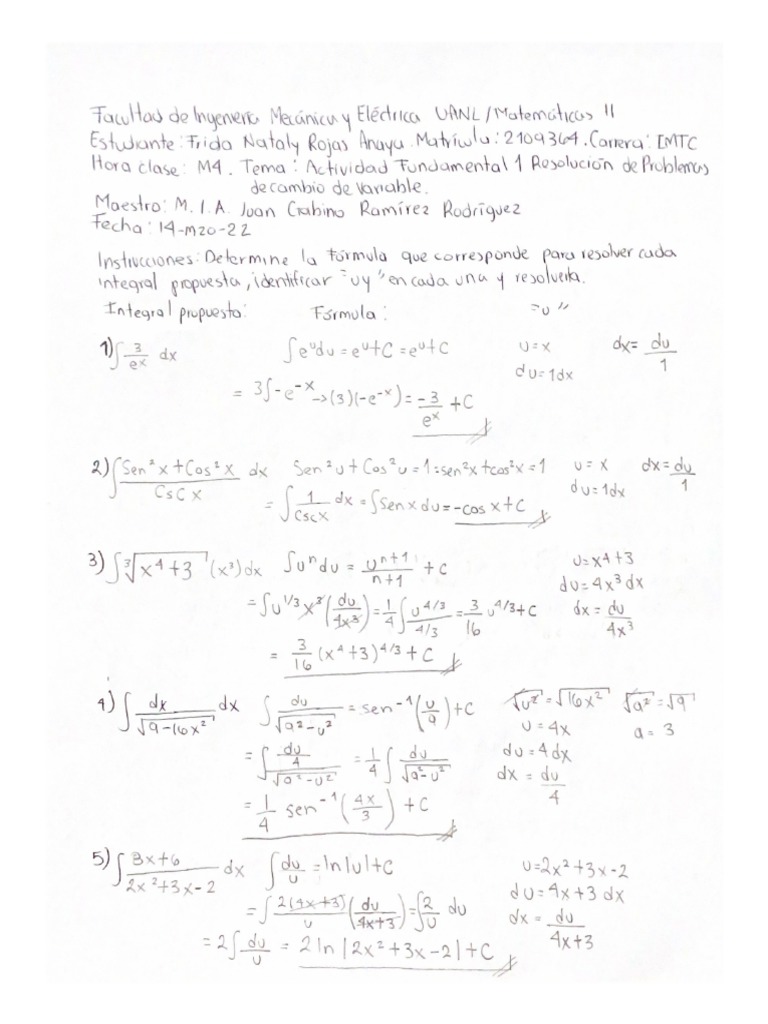 Facultad de Ingeniería Mecánica y Eléctrica UANL/Matemáticas II
Estudiante: Frida Nataly Rojas Anaya. Matrícula: 2109364. Carrera: IMTC
Hora clase: M4. Tema: Actividad Fundamental 1 Resolución de Problemas
de cambio de variable.
Maestro: M.I.A. Juan Gabino Ramírez Rodríguez
Fecha: 14-mzo-22
Instrucciones: Determine la fórmula que corresponde para resolver cada
integral propuesta, identificar "u y" en cada una y resolverla.
Integral propuesto: Fórmula: "u"
1) ∫ 3/e^x dx ∫e^u du = e^u + C = e^u + C u = x dx = du/1
du = 1dx
= 3∫-e^-x → (3)(-e^-x) = -3/e^x + C
2) ∫ Sen²x + Cos²x / Csc x dx Sen²u + Cos²u = 1 = sen²x + cos²x = 1 u = x dx = du/1
du = 1dx
= ∫ 1/Cscx dx = ∫Senx du = -cos x + C
3) ∫ ³√(x⁴+3) (x³)dx ∫u^n du = u^(n+1)/(n+1) + C u = x⁴+3
du = 4x³dx
= ∫u^1/3 x³(du/4x³) = 1/4 ∫ u^4/3 / 4/3 = 3/16 u^4/3 + C dx = du/4x³
= 3/16 (x⁴+3)^4/3 + C
4) ∫ dx/√(9-16x²) dx ∫ du/√(a²-u²) = sen⁻¹(u/a) + C √u² = √16x² √a² = √9
u = 4x a = 3
= ∫ du/4 / √(a²-u²) = 1/4 ∫ du/√(a²-u²) du = 4dx
dx = du/4
= 1/4 sen⁻¹(4x/3) + C
5) ∫ 8x+6 / 2x²+3x-2 dx ∫ du/u = ln|u| + C u = 2x²+3x-2
du = 4x+3 dx
= ∫ 2(4x+3)/u (du/4x+3) = ∫ 2/u du dx = du/4x+3
= 2∫ du/u = 2 ln|2x²+3x-2| + C